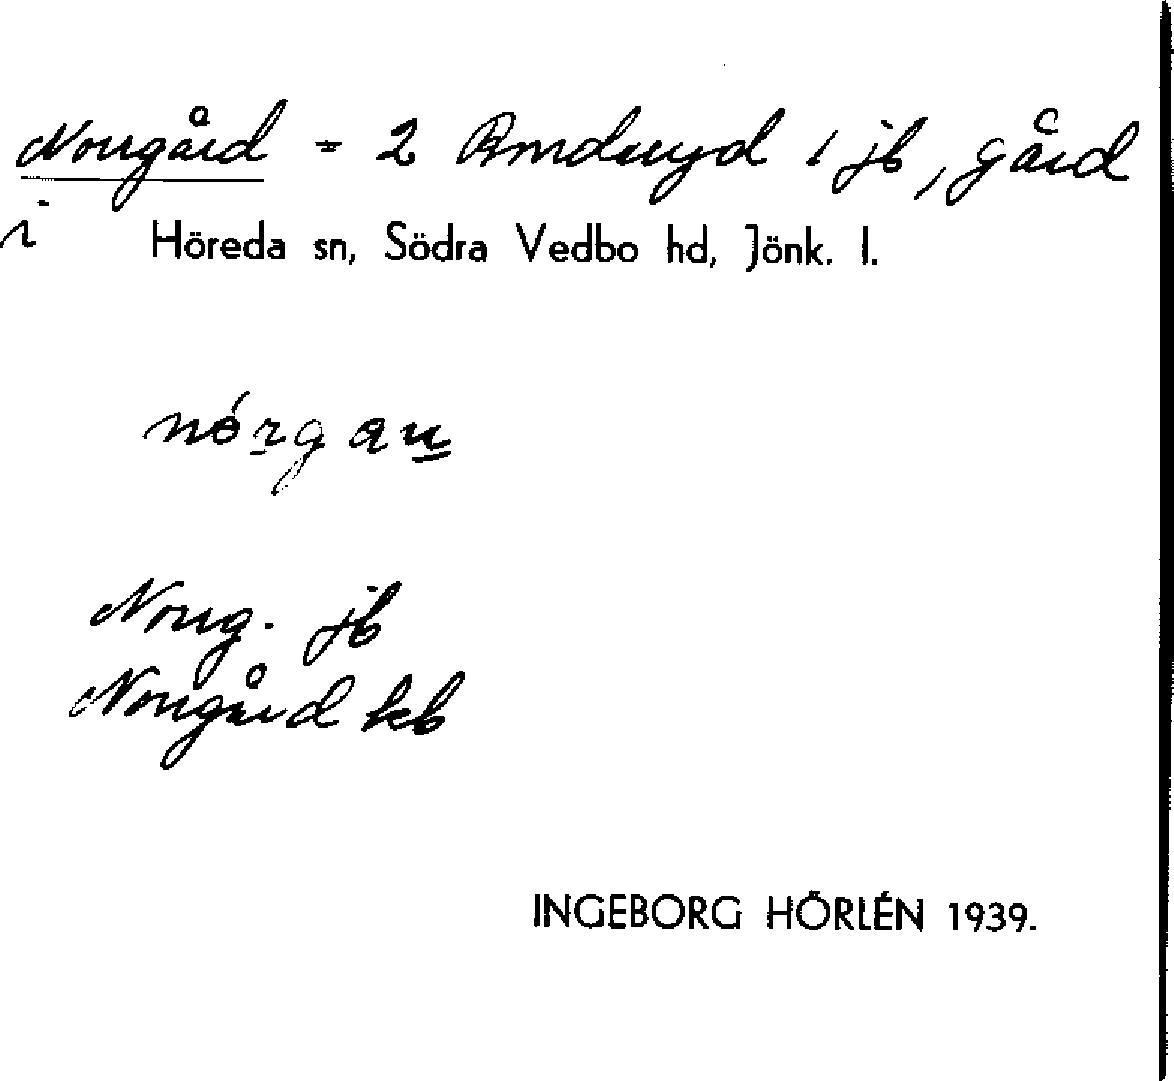 Norrgård = 2 Anderyd 1 jb, gård
i Höreda sn, Södra Vedbo hd, Jönk. l.
Norrg. jb
Norrgård kb
INGEBORG HÖRLÉN 1939.